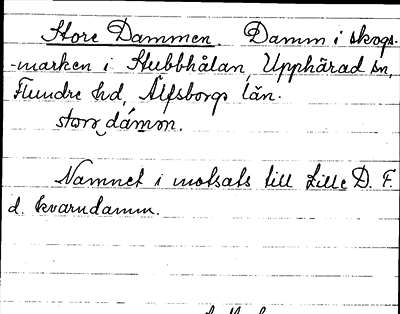 Store Dammen. Damm i skogs-
-marken i Stubbhålan, Upphärad sn,
Flundre hd, Älfsborgs län.
storə dámən.
Namnet i motsats till Lille D. F.
d. kvarndamm.